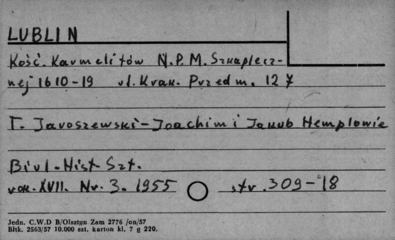 LUBLIN
Kość. Karmelitów N.P.M. Szkaplerz-
nej 1610-19 ul. Krak. Przedm. 12
T. Jaroszewski-Joachim i Jakub Hemplowie
Biul. Hist. Szt.
rok. XVII. Nr. 3. 1955 str. 309-18
Jedn. C.W.D B/Olsztyn Zam 2776 /on/57
Bltk. 2563/57 10.000 szt. karton kl. 7 g 220.